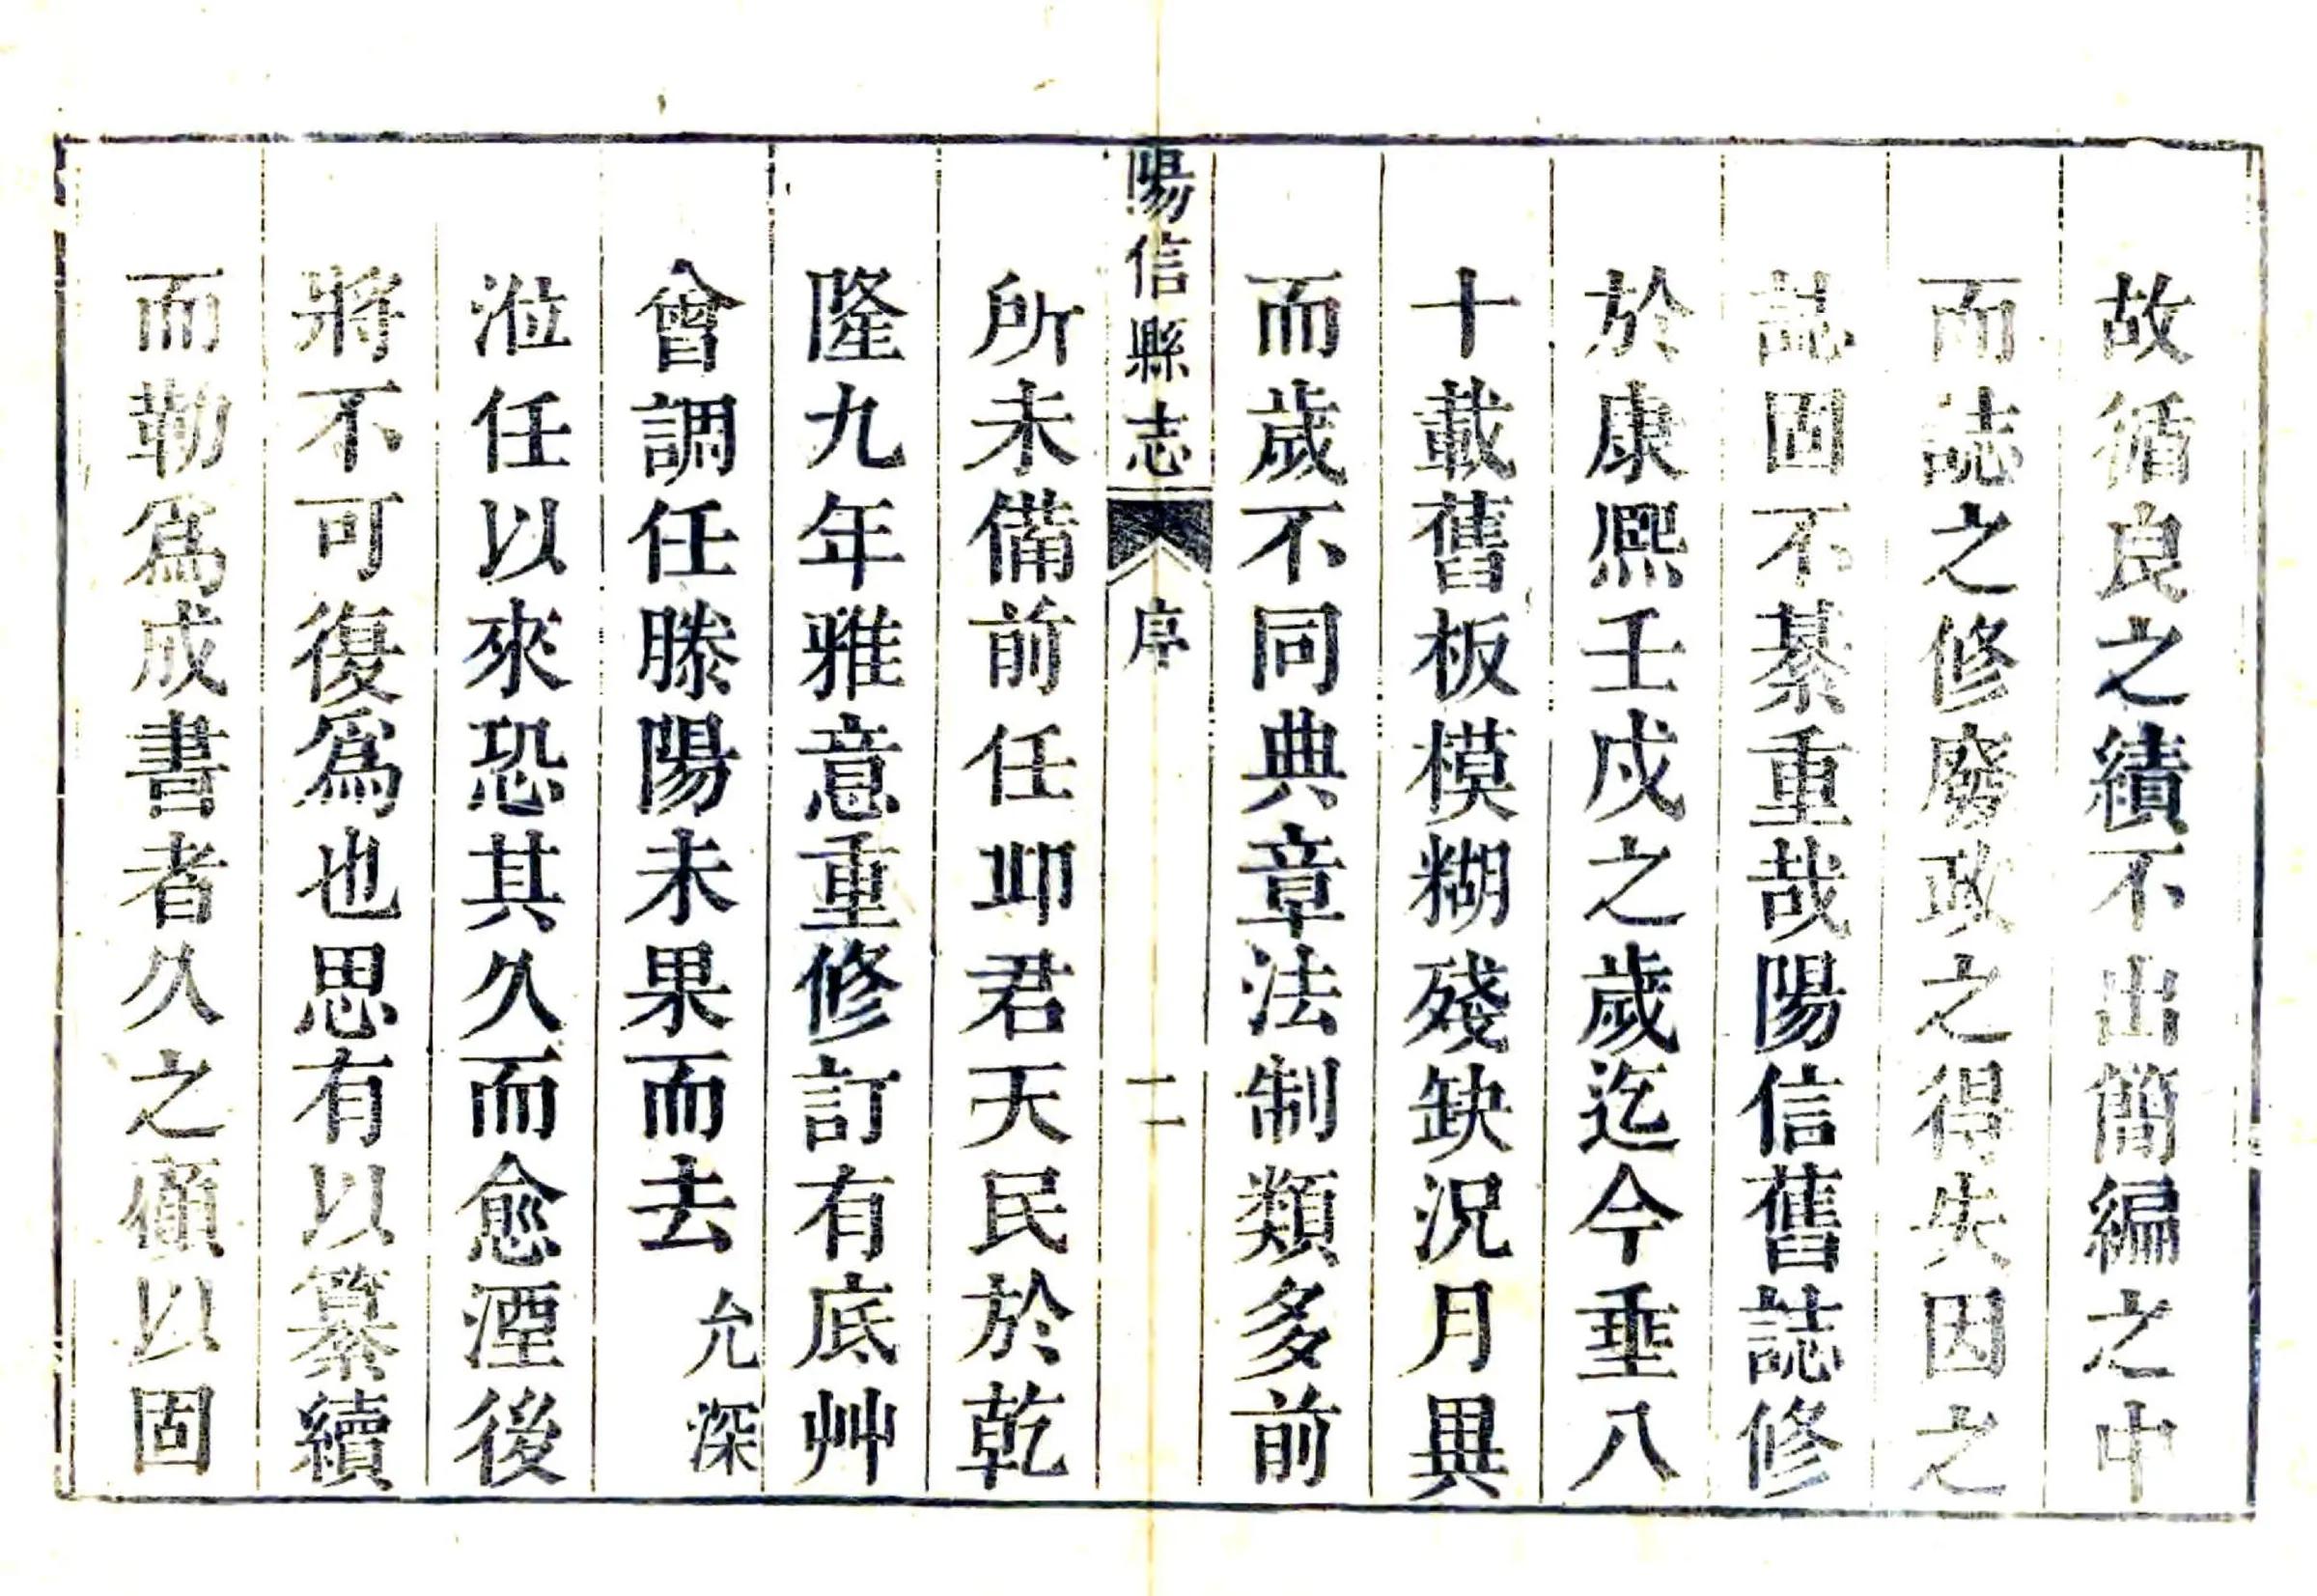 故循良之績不出簡編之中
而誌之修廢政之得失因之
誌固不綦重哉陽信舊誌修
於康熙壬戌之歲迄今垂八
十載舊板模糊殘缺況月異
而歲不同典章法制類多前
陽信縣志 序 二
所未備前任邱君天民於乾
隆九年雅意重修訂有底艸
曾調任滕陽未果而去允深
涖任以來恐其久而愈湮後
將不可復為也思有以纂續
而勒為成書者久之顧以固